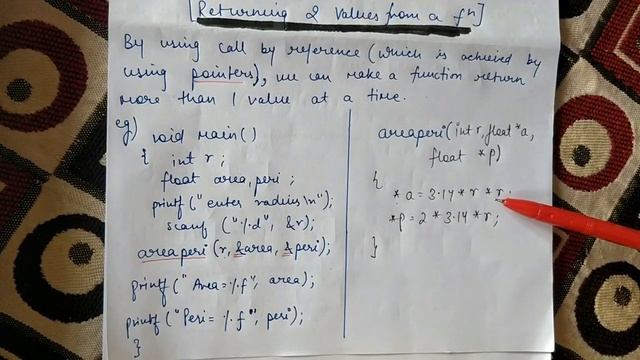 [Returning 2 values from a fⁿ]
By using call by reference (which is achieved by
using pointers), we can make a function return
more than 1 value at a time.
eg) void main()
{ int r;
float area, peri;
printf("enter radius\n");
scanf ("%d", &r);
areaperi (r, &area, &peri);
printf("Area=%f", area);
printf("Peri= %f", peri);
}
areaperi(int r, float *a,
float *p)
{
*a=3.14*r*r;
*p=2*3.14*r;
}